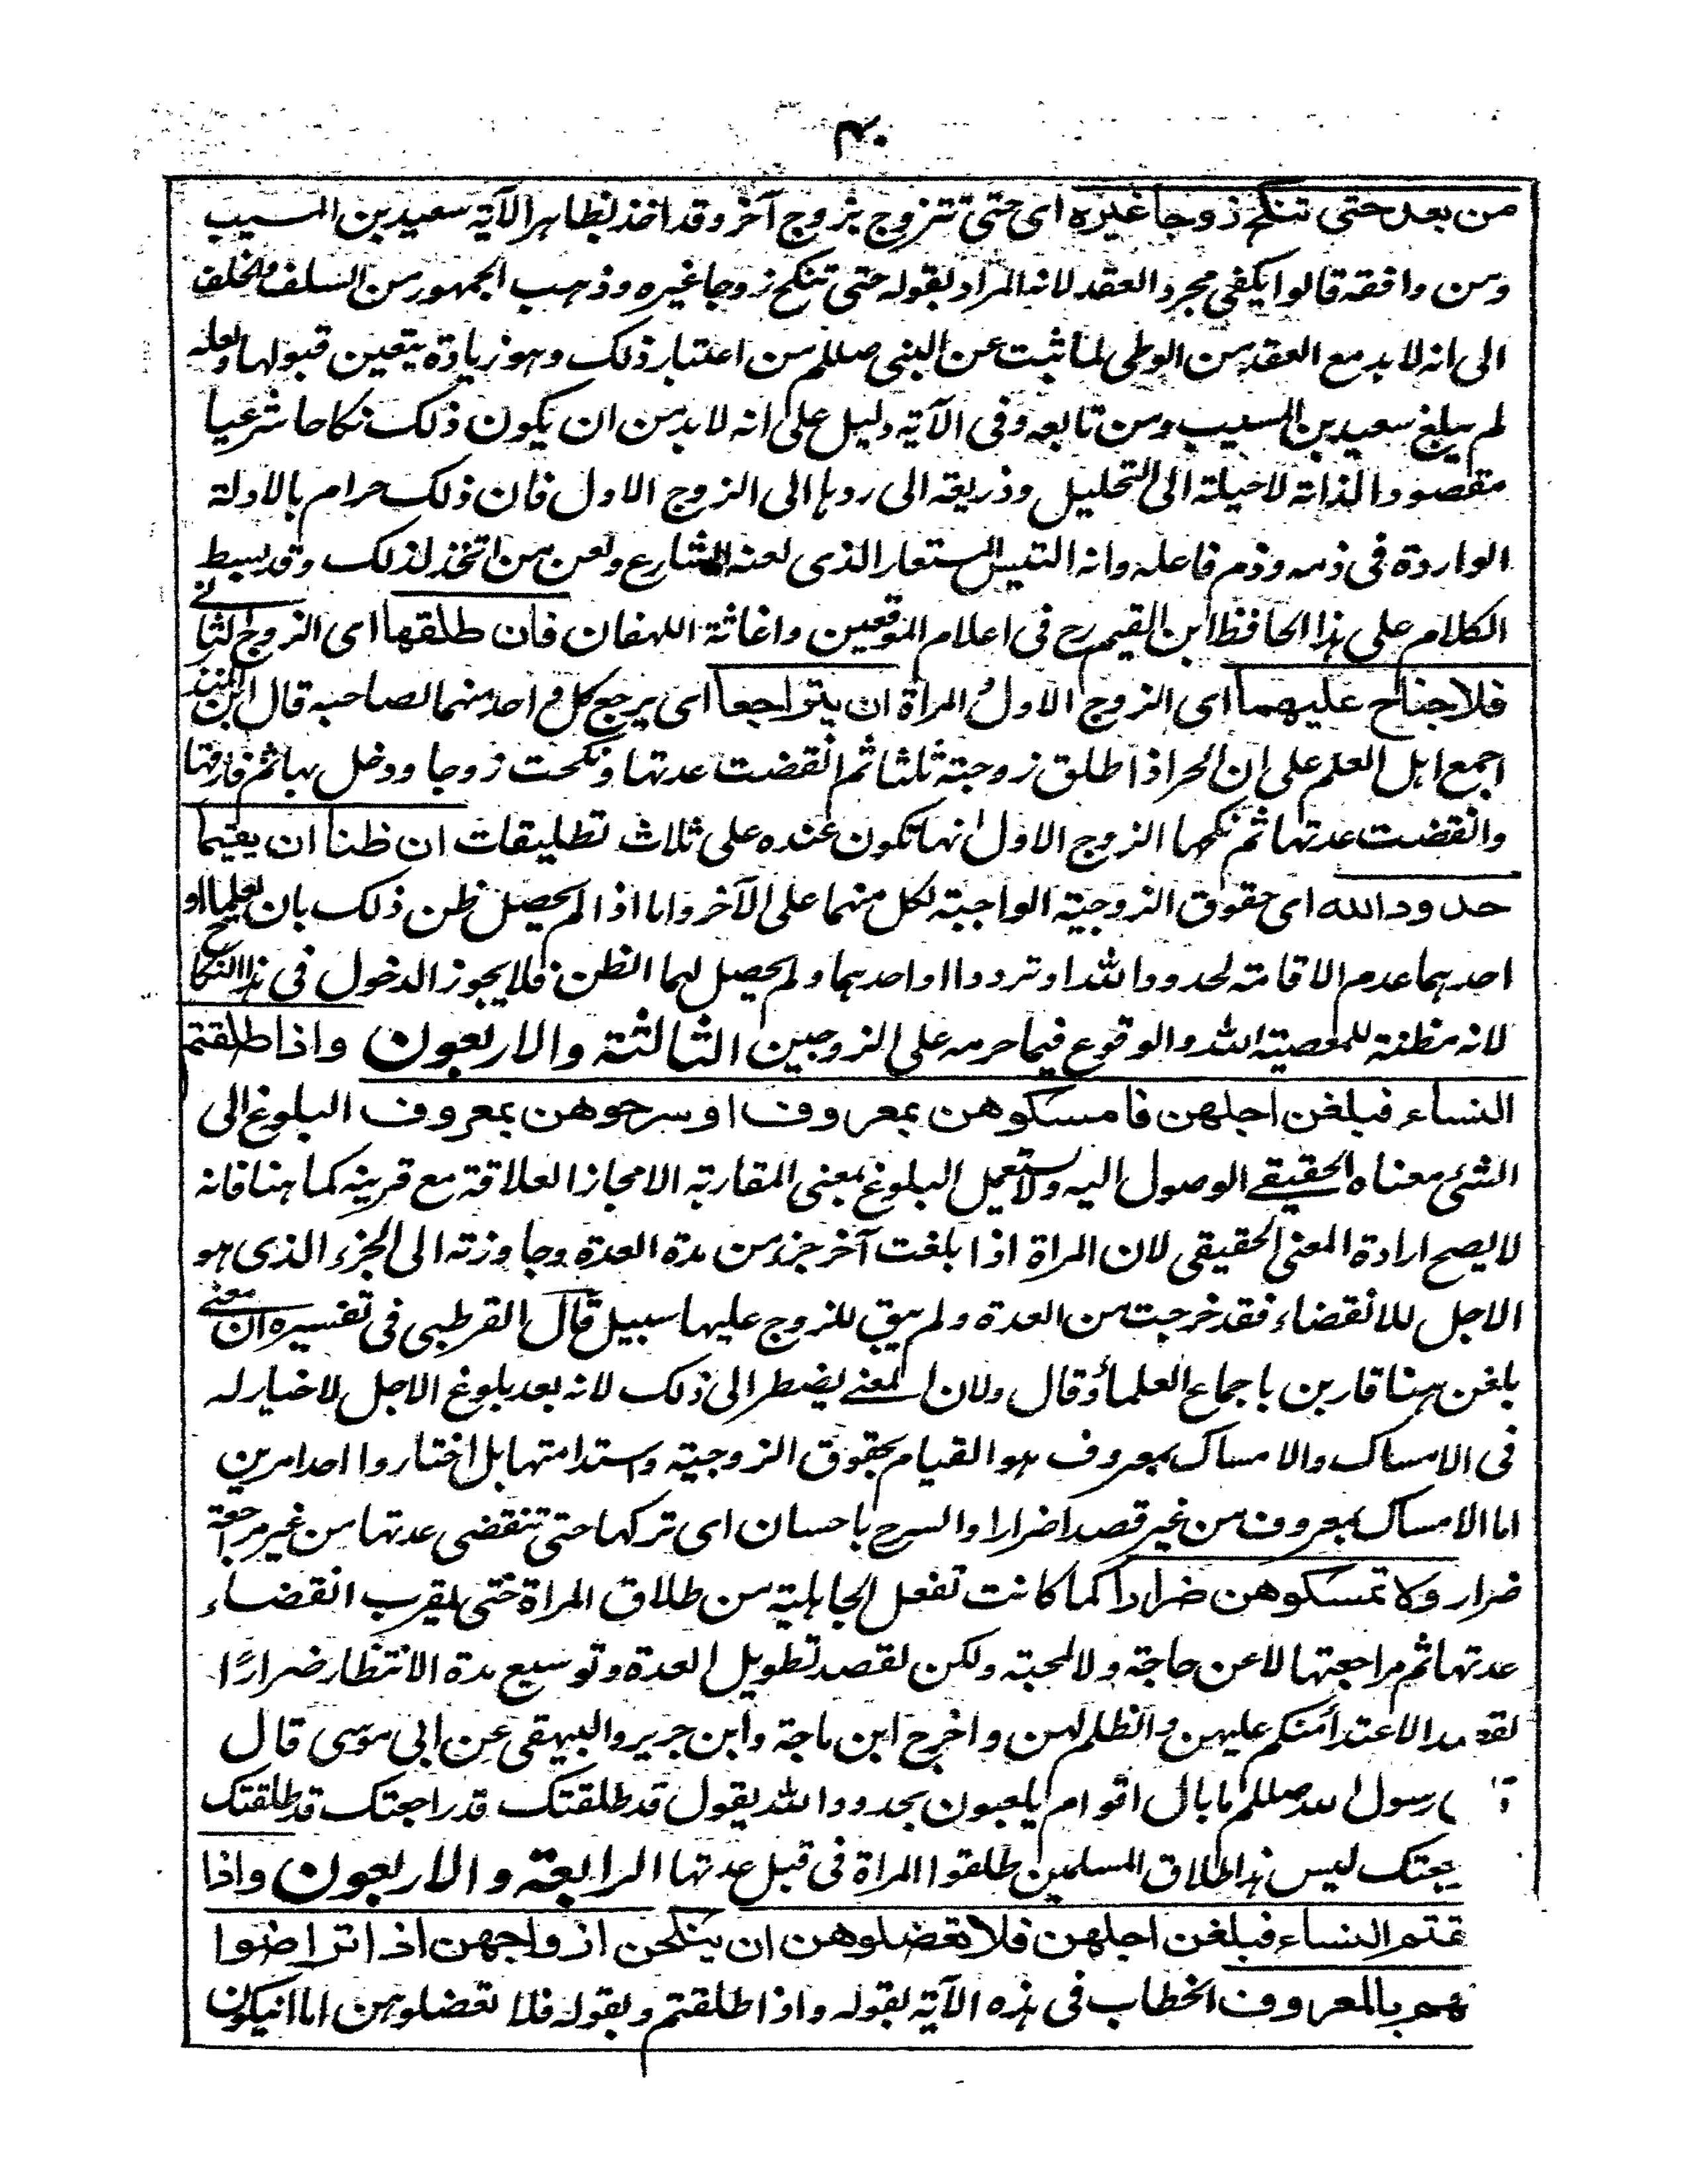 ۴۰
من بعد حتى تنكح زوجا غيره اى حتى تتزوج بزوج آخر وقد اخذ بظاهر الآية سعيد بن المسيب
ومن وافقه قالوا يكفى مجرد العقد لانه المراد بقوله حتى تنكح زوجا غيره وذهب الجمهور من السلف والخلف
الى انه لا بد مع العقد من الوطى لما ثبت عن النبى صللم من اعتبار ذلك وهو زيادة يتعين قبولها ولعله
لم يبلغ سعيد بن المسيب ومن تابعه وفى الآية دليل على انه لا بد من ان يكون ذلك نكاحا شرعيا
مقصودا لذاته لا حيلة الى التحليل وذريعة الى ردها الى الزوج الاول فان ذلك حرام بالادلة
الواردة فى ذمه وذم فاعله وانه التيس المستعار الذى لعنه الشارع ولعن من اتخذ لذلك وقد بسط
الكلام على هذا الحافظ ابن القيم رح فى اعلام الموقعين واغاثة اللهفان فان طلقها اى الزوج الثانى
فلا جناح عليهما اى الزوج الاول والمراة ان يتراجعا اى يرجع كل واحد منهما لصاحبه قال ابن المنذر
اجمع اهل العلم على ان الحر اذا طلق زوجته ثلثا ثم انقضت عدتها ونكحت زوجا ودخل بها ثم فارقها
وانقضت عدتها ثم نكحها الزوج الاول انها تكون عنده على ثلاث تطليقات ان ظنا ان يقيما
حدود الله اى حقوق الزوجية الواجبة لكل منهما على الآخر واما اذا لم يحصل ظن ذلك بان يعلما او
احدهما عدم الاقامة لحدود الله او ترددا او احدهما ولم يحصل لهما الظن فلا يجوز الدخول فى هذا النكاح
لانه مظنة للمعصية الله والوقوع فيما حرمه على الزوجين الثالثة والاربعون واذا طلقتم
النساء فبلغن اجلهن فامسكوهن بمعروف او سرحوهن بمعروف البلوغ الى
الشئ معناه الحقيقى الوصول اليه ولا يستعمل البلوغ بمعنى المقاربة الا مجازا لعلاقة مع قرينة كما هنا فانه
لا يصح ارادة المعنى الحقيقى لان المراة اذا بلغت آخر جزء من مدة العدة وجاوزته الى الجزء الذى هو
الاجل للانقضاء فقد خرجت من العدة ولم يبق للزوج عليها سبيل قال القرطبى فى تفسيره ان معنى
بلغن هنا قاربن باجماع العلماء وقال ولان المعنى يضطر الى ذلك لانه بعد بلوغ الاجل لا خيار له
فى الامساك والامساك بمعروف هو القيام بحقوق الزوجية واستدامتها بل اختاروا احد امرين
اما الامساك بمعروف من غير قصد اضرار او السرح باحسان اى تركها حتى تنقضى عدتها من غير مراجعة
ضرار ولا تمسكوهن ضرارا كما كانت تفعل الجاهلية من طلاق المراة حتى يقرب انقضاء
عدتها ثم مراجعتها لا عن حاجة ولا لمحبة ولكن لقصد تطويل العدة وتوسيع مدة الانتظار ضرارًا
لقصد الاعتداء منكم عليهن والظلم لهن واخرج ابن ماجة وابن جرير والبيهقى عن ابى موسى قال
رسول الله صللم ما بال اقوام يلعبون بحدود الله يقول قد طلقتك قد راجعتك قد طلقتك
جعتك ليس هذا طلاق المسلمين طلقوا المراة فى قبل عدتها الرابعة والاربعون واذا
قتم النساء فبلغن اجلهن فلا تعضلوهن ان ينكحن ازواجهن اذا تراضوا
هم بالمعروف الخطاب فى هذه الآية بقوله واذا طلقتم وبقوله فلا تعضلوهن اما ان يكون